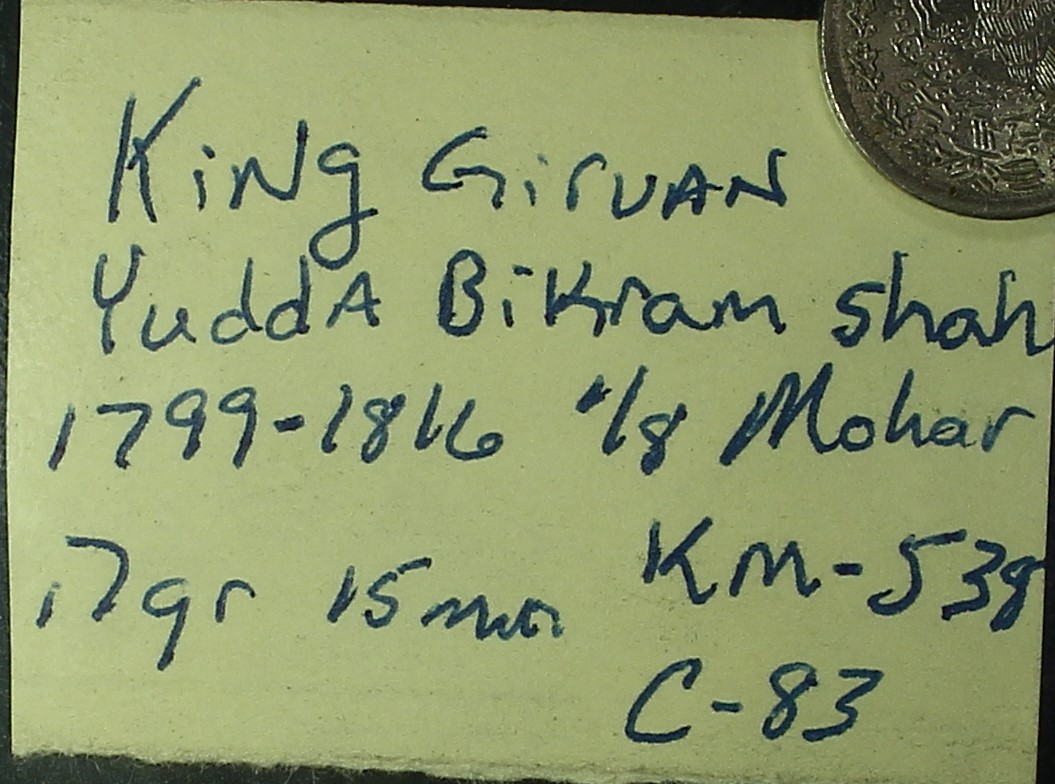 King Girvan
Yudda Bikram Shah
1799-1816 1/8 Mohar
17gr 15mm KM-538
C-83